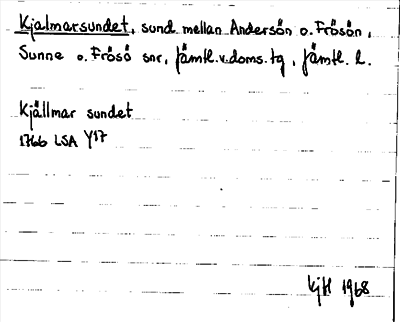 Kjalmarsundet, sund mellan Andersön o. Frösön,
Sunne o. Frösö snr, Jämtl.v.doms.tg, Jämtl. l.
Kjällmar sundet
1766 LSA Y17
KjH 1968